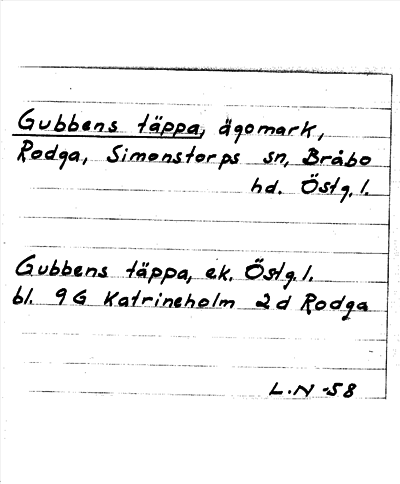 Gubbens täppa, ägomark,
Rodga, Simonstorps sn, Bråbo
hd. Östg. l.
Gubbens täppa, ek. Östg. l.
bl. 9 G Katrineholm 2 d Rodga
L.N -58